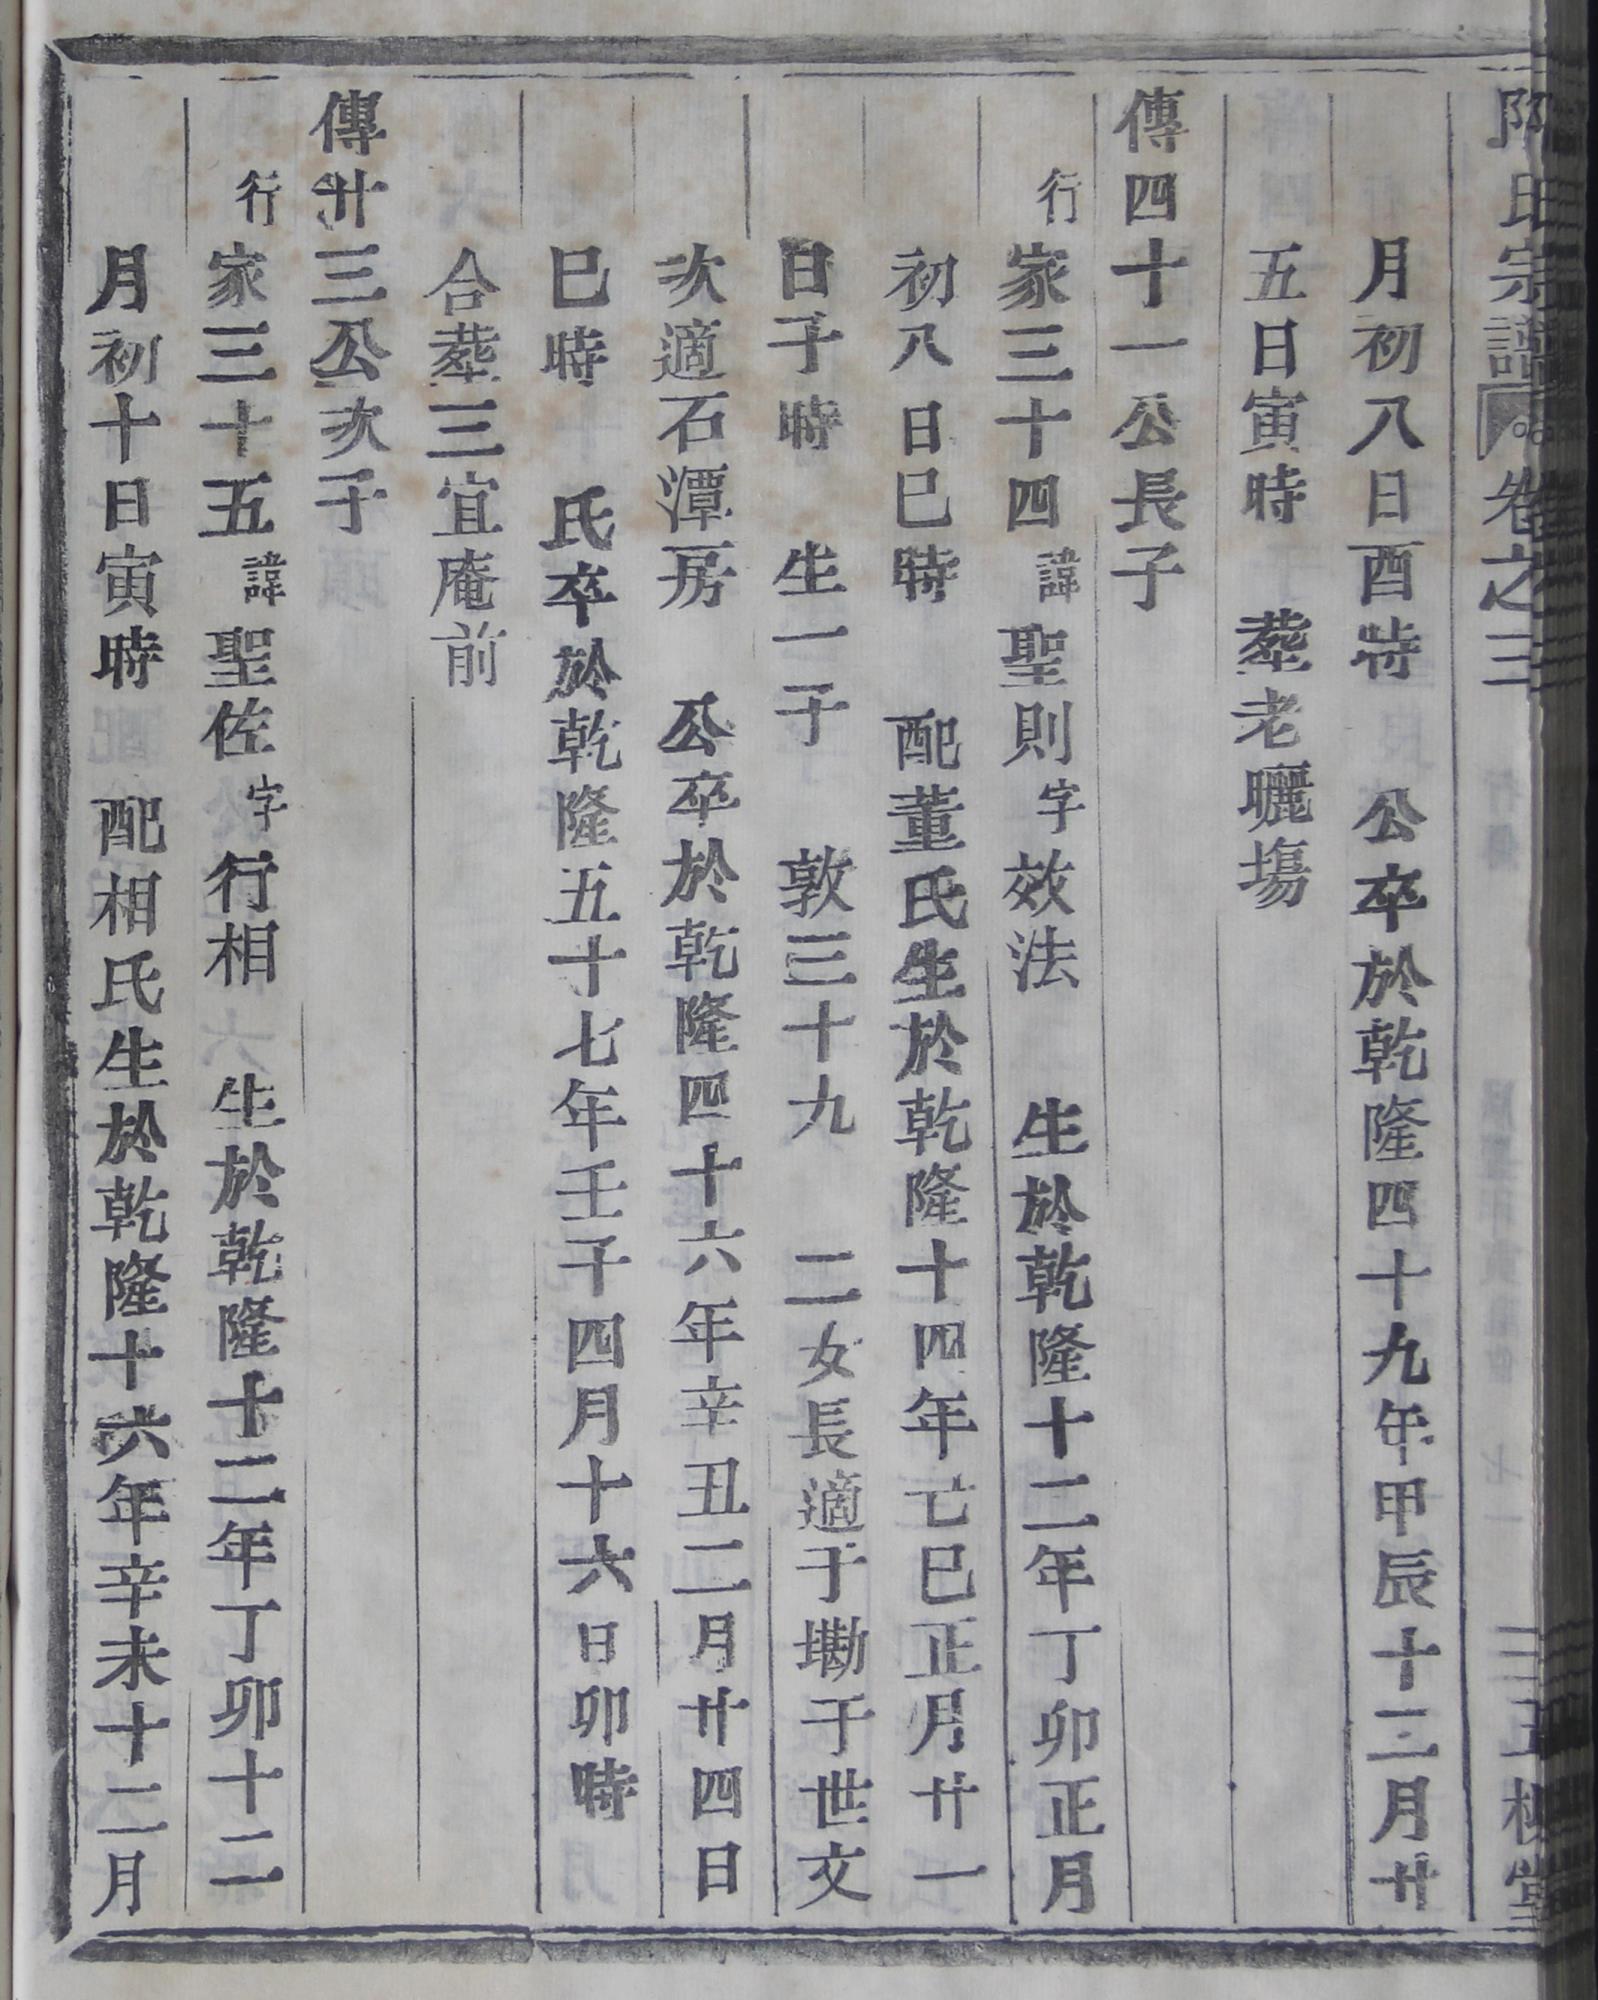 氏宗譜 卷之三
月初八日酉時 公卒於乾隆四十九年甲辰十二月廿
五日寅時 葬老曬塲
傳四十一公長子
行家三十四諱聖則字效法 生於乾隆十二年丁卯正月
初八日巳時 配董氏生於乾隆十四年己巳正月廿一
日子時 生一子 敦三十九 二女長適于墈于世文
次適石潭房 公卒於乾隆四十六年辛丑二月廿四日
巳時 氏卒於乾隆五十七年壬子四月十六日卯時
合葬三宜庵前
傳廿三公次子
行家三十五諱聖佐字行相 生於乾隆十二年丁卯十二
月初十日寅時 配相氏生於乾隆十六年辛未十二月